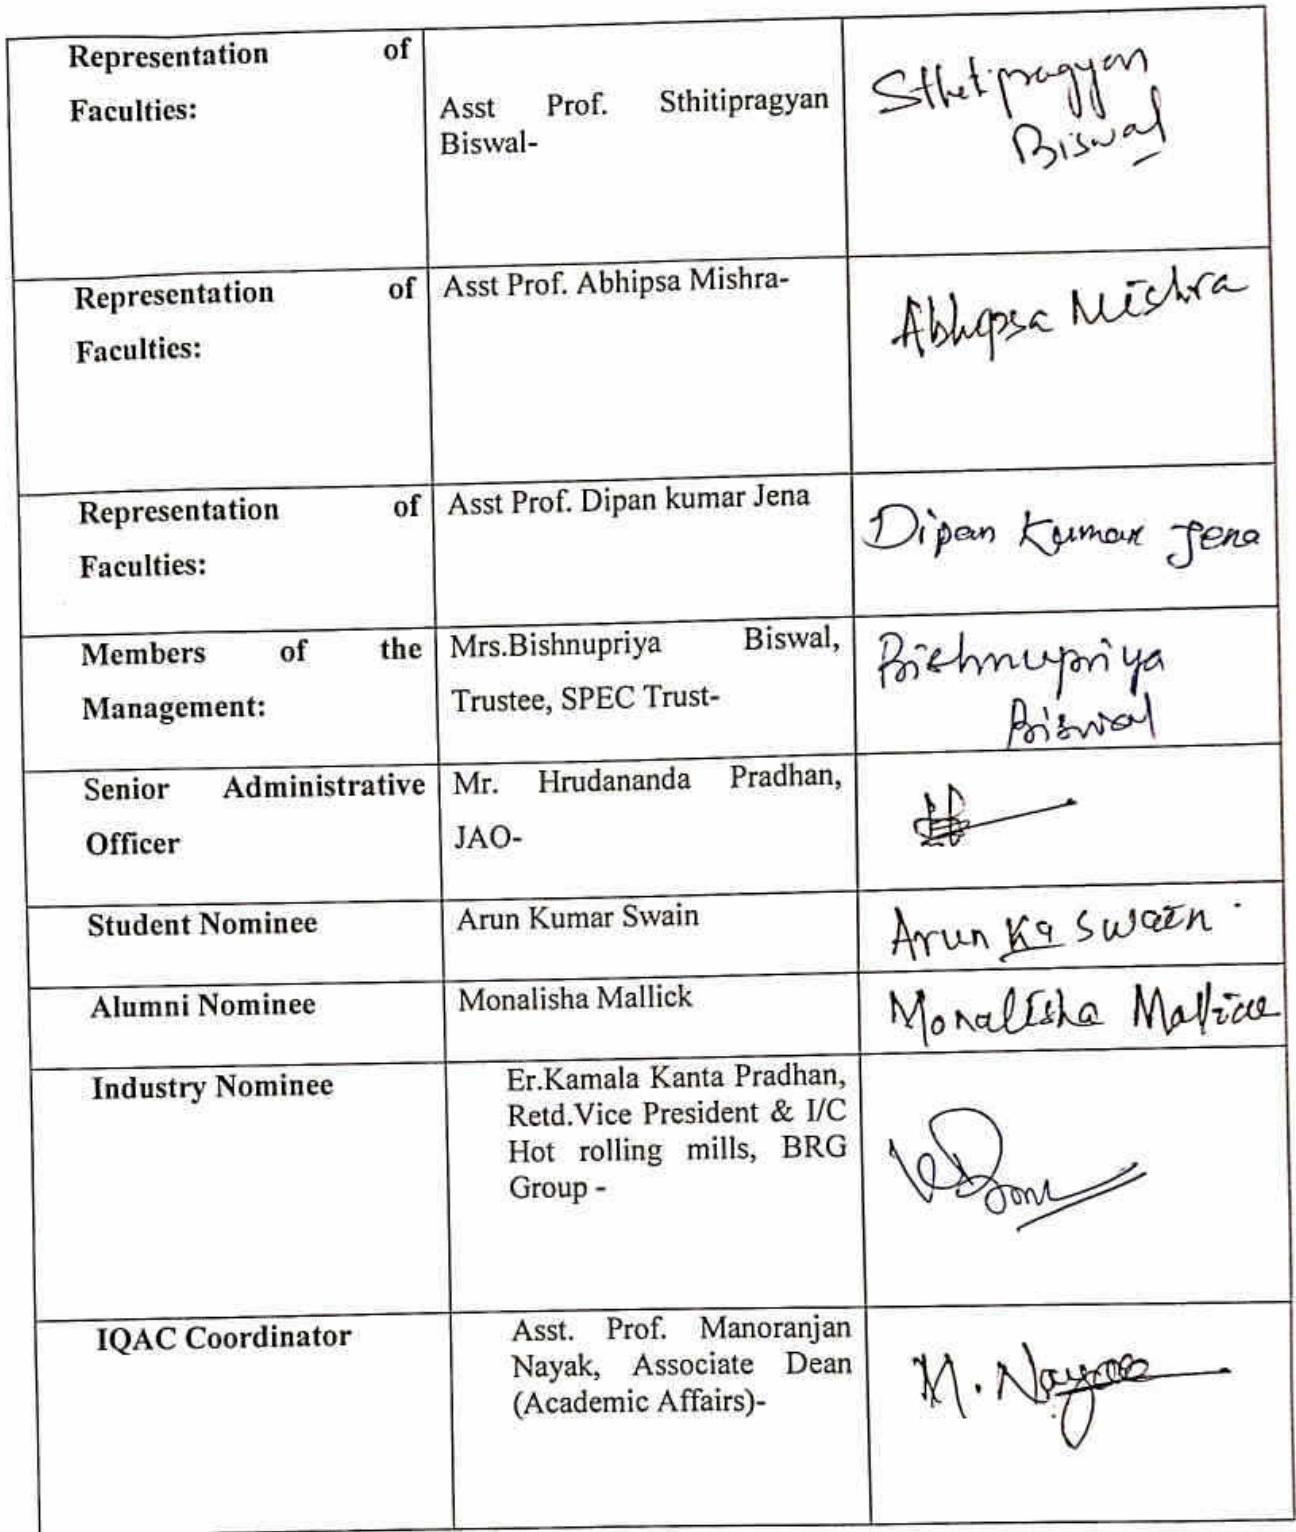 Representation of
Faculties:
Asst Prof. Sthitipragyan
Biswal-
Sthitipragyan
Biswal
Representation of
Faculties:
Asst Prof. Abhipsa Mishra-
Abhipsa Mishra
Representation of
Faculties:
Asst Prof. Dipan kumar Jena
Dipan Kumar Jena
Members of the
Management:
Mrs.Bishnupriya Biswal,
Trustee, SPEC Trust-
Bishnupriya
Biswal
Senior Administrative
Officer
Mr. Hrudananda Pradhan,
JAO-
Student Nominee
Arun Kumar Swain
Arun Ku Swain
Alumni Nominee
Monalisha Mallick
Monalisha Mallick
Industry Nominee
Er.Kamala Kanta Pradhan,
Retd.Vice President & I/C
Hot rolling mills, BRG
Group -
IQAC Coordinator
Asst. Prof. Manoranjan
Nayak, Associate Dean
(Academic Affairs)-
M. Nayak